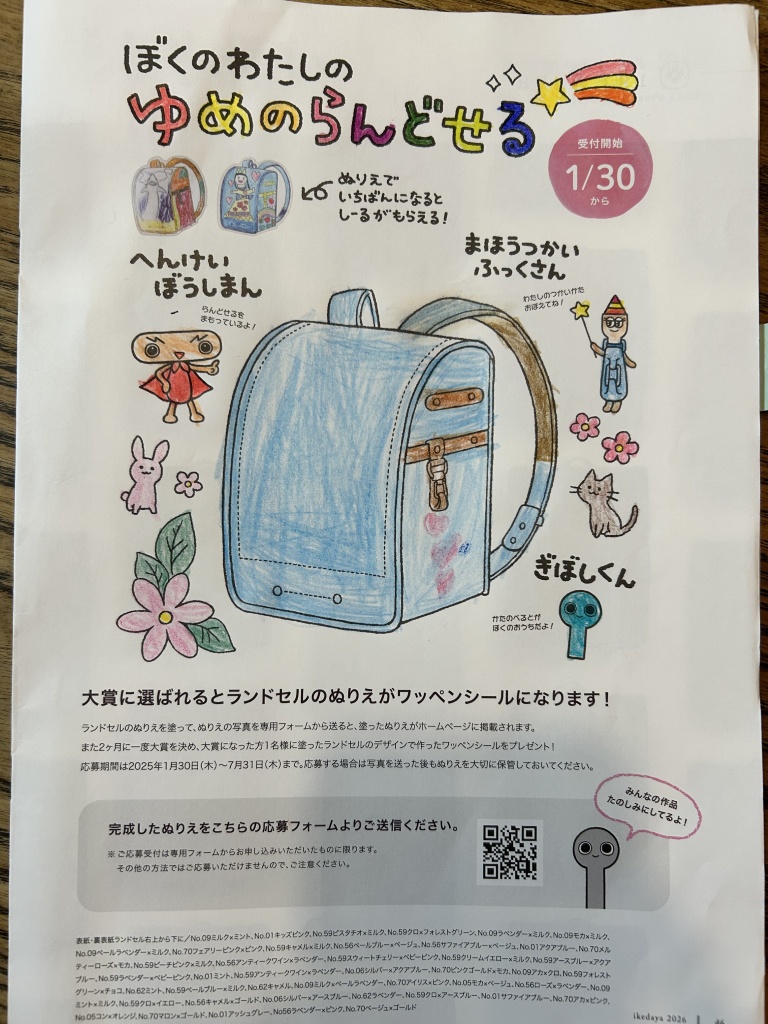 ぼくのわたしの
ゆめのらんどせる
受付開始
1/30
から
ぬりえで
いちばんになると
しーるがもらえる!
へんけい
ぼうしまん
らんどせるを
まもっているよ!
まほうつかい
ふっくさん
わたしのつかいかた
おぼえてね!
ぎぼしくん
かたのべるとが
ぼくのおうちだよ!
大賞に選ばれるとランドセルのぬりえがワッペンシールになります!
ランドセルのぬりえを塗って、ぬりえの写真を専用フォームから送ると、塗ったぬりえがホームページに掲載されます。
また2ヶ月に一度大賞を決め、大賞になった方1名様に塗ったランドセルのデザインで作ったワッペンシールをプレゼント!
応募期間は2025年1月30日(木)〜7月31日(木)まで。応募する場合は写真を送った後もぬりえを大切に保管しておいてください。
みんなの作品
たのしみにしてるよ!
完成したぬりえをこちらの応募フォームよりご送信ください。
※ご応募受付は専用フォームからお申し込みいただいたものに限ります。
その他の方法ではご応募いただけませんので、ご注意ください。
表紙・裏表紙ランドセル右上から下に/No.09ミルク×ミント、No.01キッズピンク、No.59ピスタチオ×ミルク、No.59クロ×フォレストグリーン、No.09ラベンダー×ミルク、No.09モカ×ミルク、
No.09ペールラベンダー×ミルク、No.70フェアリーピンク×ピンク、No.59キャメル×ミルク、No.56ペールブルー×ベージュ、No.56サファイアブルー×ベージュ、No.01アクアブルー、No.70メル
ティーローズ×モカ、No.59ピーチピンク×ミルク、No.56アンティークワイン×ラベンダー、No.59スウィートチェリー×ベビーピンク、No.59クリームイエロー×ミルク、No.59アースブルー×アクア
ブルー、No.59ラベンダー×ベビーピンク、No.01ミント、No.59アンティークワイン×ラベンダー、No.06シルバー×アクアブルー、No.70ピンクゴールド×モカ、No.09アカ×クロ、No.59フォレスト
グリーン×チョコ、No.62ミント、No.59ペールブルー×ミルク、No.62キャメル、No.09ミルク×ペールラベンダー、No.70アイリス×ピンク、No.05モカ×ベージュ、No.56ローズ×ラベンダー、No.09
ミント×ミルク、No.59クロ×イエロー、No.56キャメル×ゴールド、No.06シルバー×アースブルー、No.62ラベンダー、No.59クロ×アースブルー、No.01サファイアブルー、No.70アカ×ピンク、
No.05コン×オレンジ、No.70マロン×ゴールド、No.01アッシュグレー、No.56ラベンダー×ピンク、No.70ベージュ×ゴールド
ikedaya 2026 46